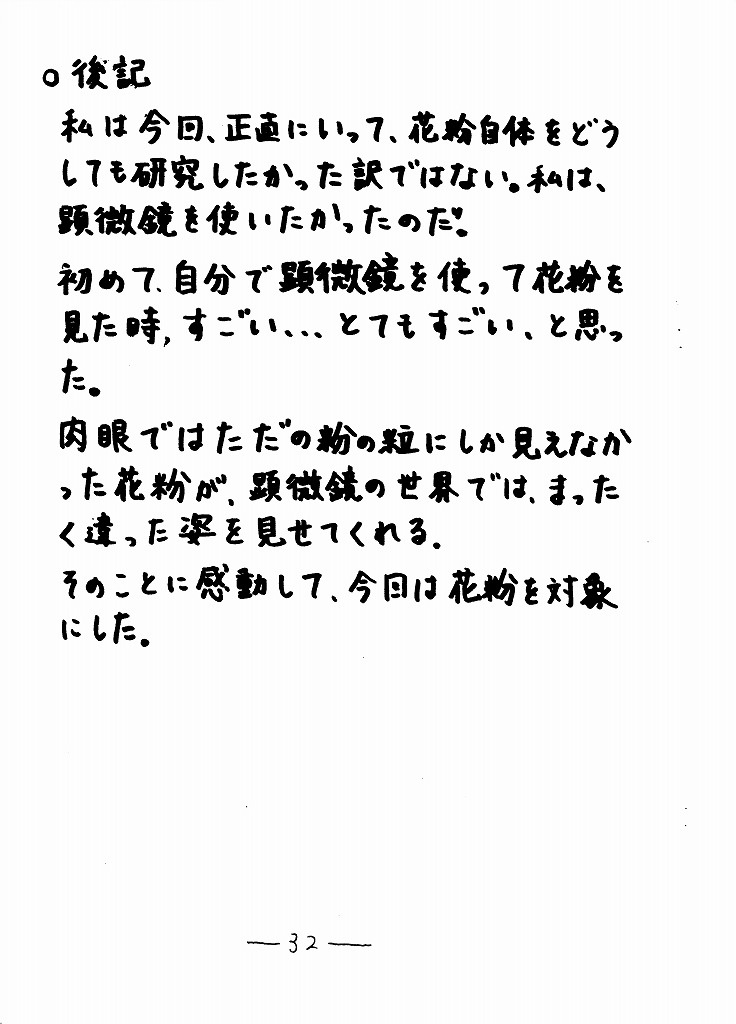 ○後記
私は今回、正直にいって、花粉自体をどう
しても研究したかった訳ではない。私は、
顕微鏡を使いたかったのだ。
初めて、自分で顕微鏡を使って花粉を
見た時，すごい、、、とてもすごい、と思っ
た。
肉眼ではただの粉の粒にしか見えなか
った花粉が、顕微鏡の世界では、まった
く違った姿を見せてくれる。
そのことに感動して、今回は花粉を対象
にした。
—32—